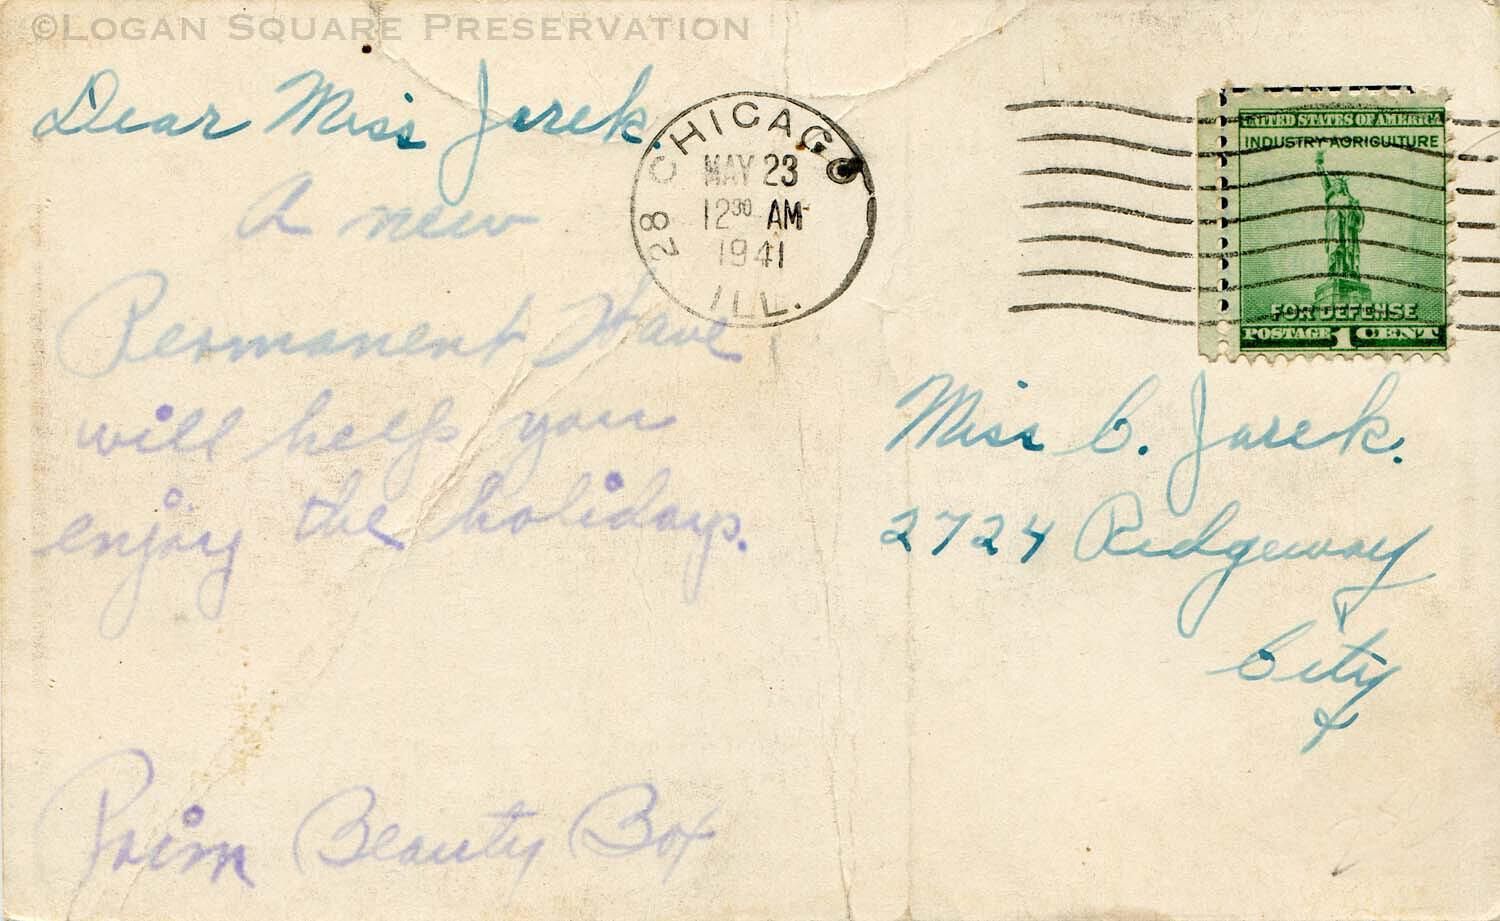 ©LOGAN SQUARE PRESERVATION
Dear Miss Jarek.
A new
Permanent Wave
will help you
enjoy the holidays.
Prim Beauty Box
28 CHICAGO
MAY 23
12 30 AM
1941
ILL.
UNITED STATES OF AMERICA
INDUSTRY AGRICULTURE
FOR DEFENSE
POSTAGE 1 CENT
Miss C. Jarek.
2724 Ridgeway
City